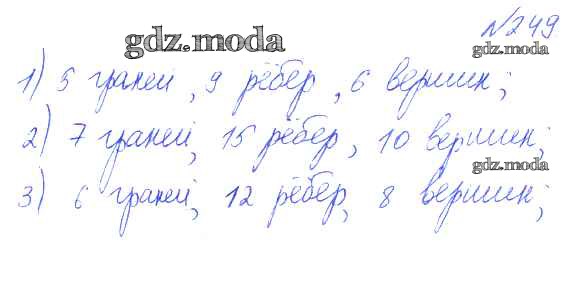 №249
gdz.moda
gdz.moda
1) 5 граней, 9 рёбер, 6 вершин;
2) 7 граней, 15 рёбер, 10 вершин;
gdz.moda
3) 6 граней, 12 рёбер, 8 вершин;